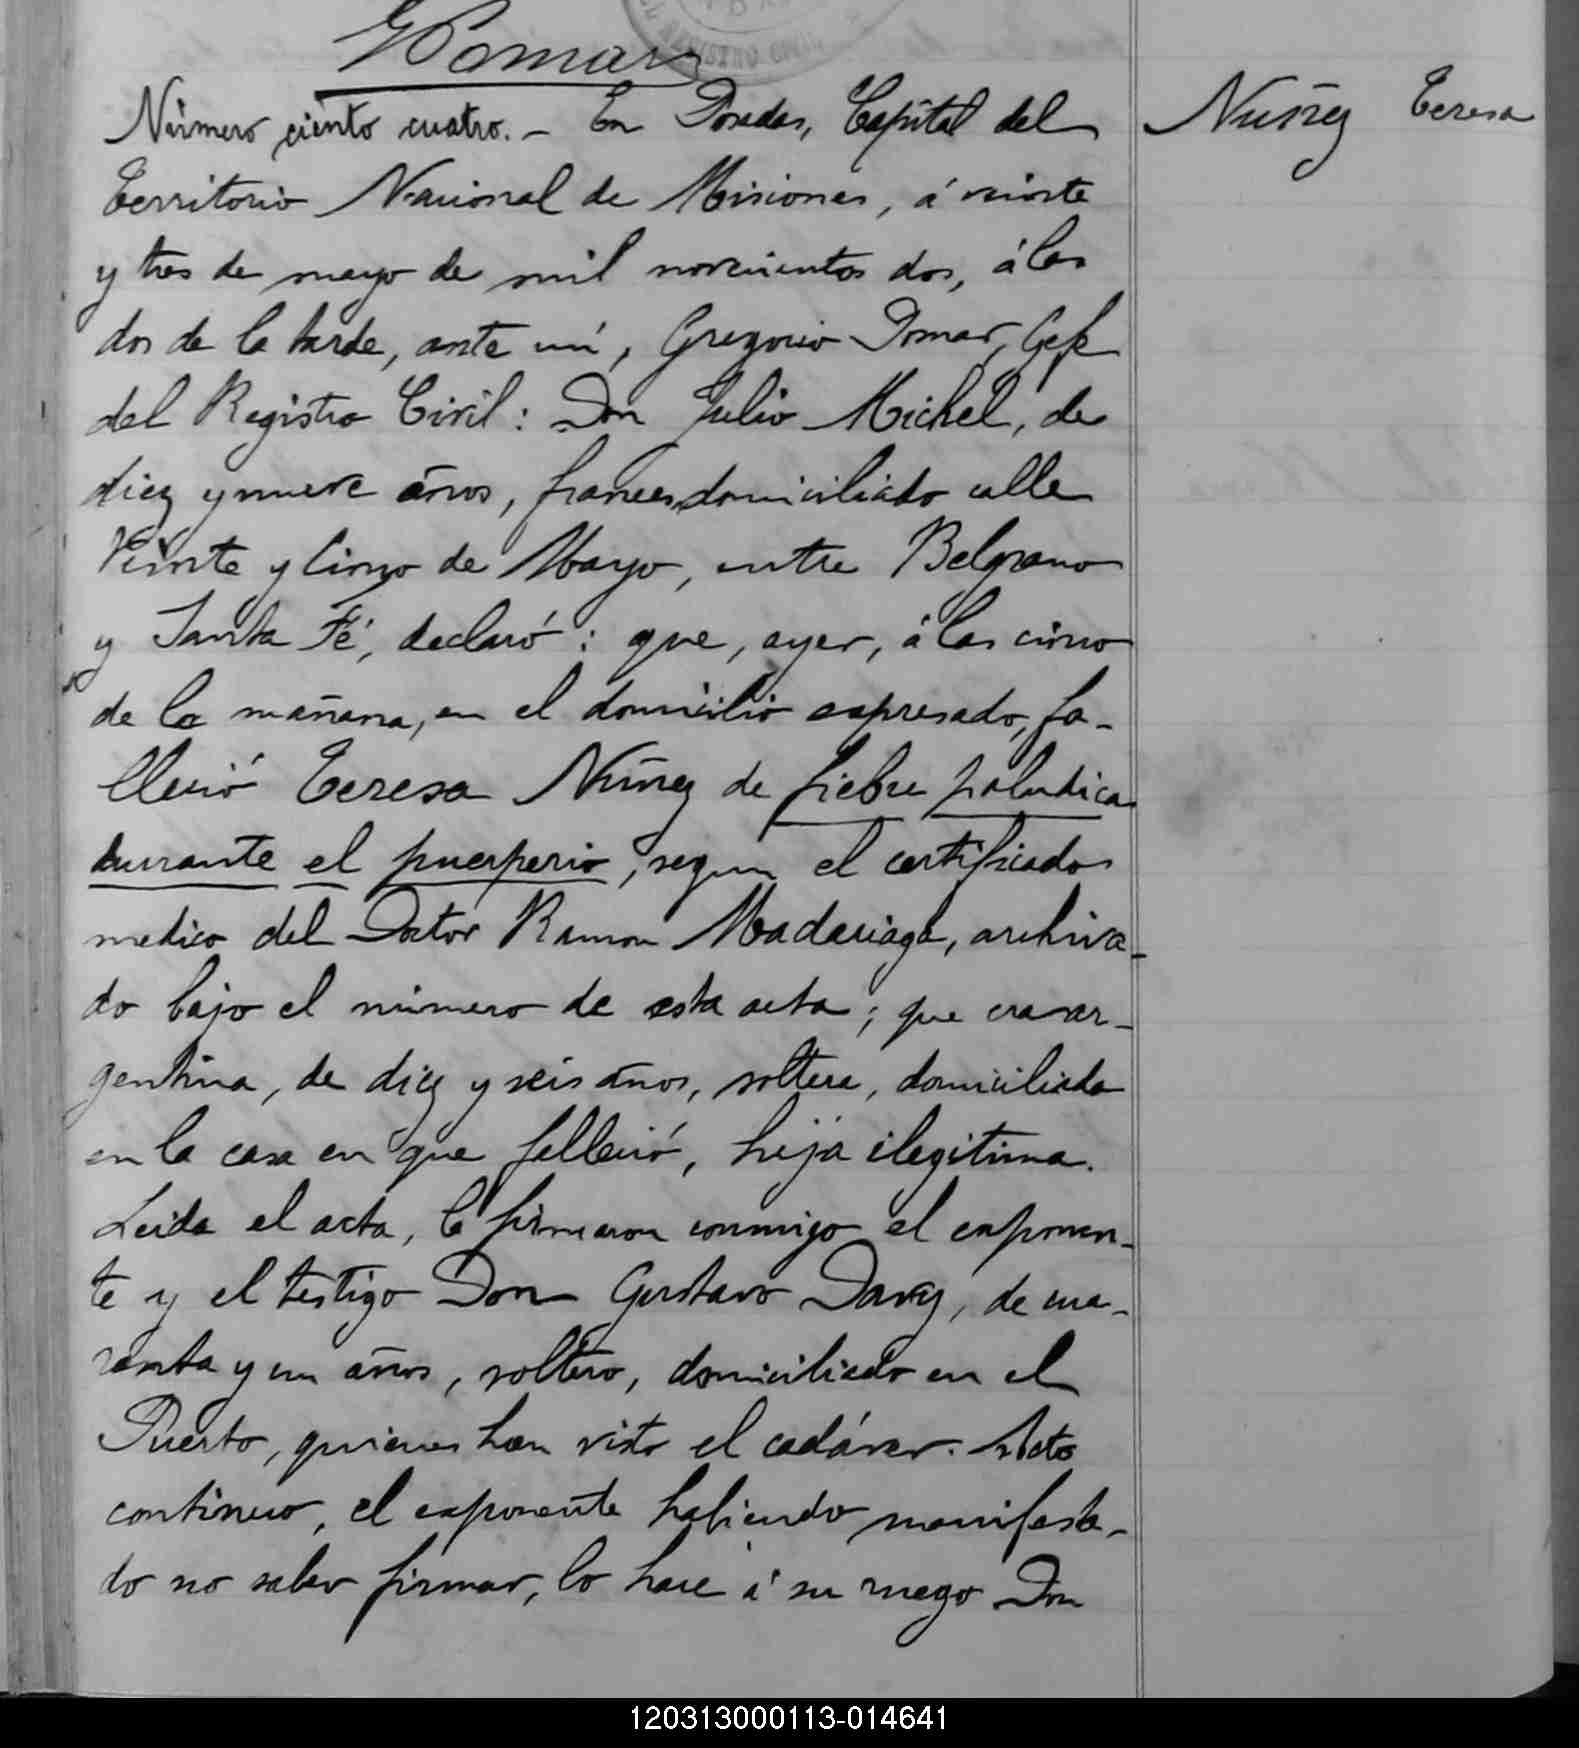 GPomar
Número ciento cuatro. - En Posadas, Capital del
Nuñez Teresa
Territorio Nacional de Misiones, á veinte
y tres de mayo de mil novecientos dos, á las
dos de la tarde, ante mí, Gregorio Pomar, Gefe
del Registro Civil: Don Julio Michel, de
diez y nueve años, frances, domiciliado calle
Veinte y Cinco de Mayo, entre Belgrano
y Santa Fé, declaró: que, ayer, á las cinco
de la mañana, en el domicilio expresado, fa-
lleció Teresa Nuñez de fiebre paludica
durante el puerperio, segun el certificado
medico del Doctor Ramon Madariaga, archiva-
do bajo el número de esta acta; que era ar-
gentina, de diez y seis años, soltera, domiciliada
en la casa en que falleció, hija ilegitima.
Leida el acta, la firmaron conmigo el exponen-
te y el testigo Don Gustavo Davey, de cua-
renta y un años, soltero, domiciliado en el
Puerto, quienes han visto el cadáver. Acto
continuo, el exponente habiendo manifesta-
do no saber firmar, lo hace á su ruego Don
120313000113-014641